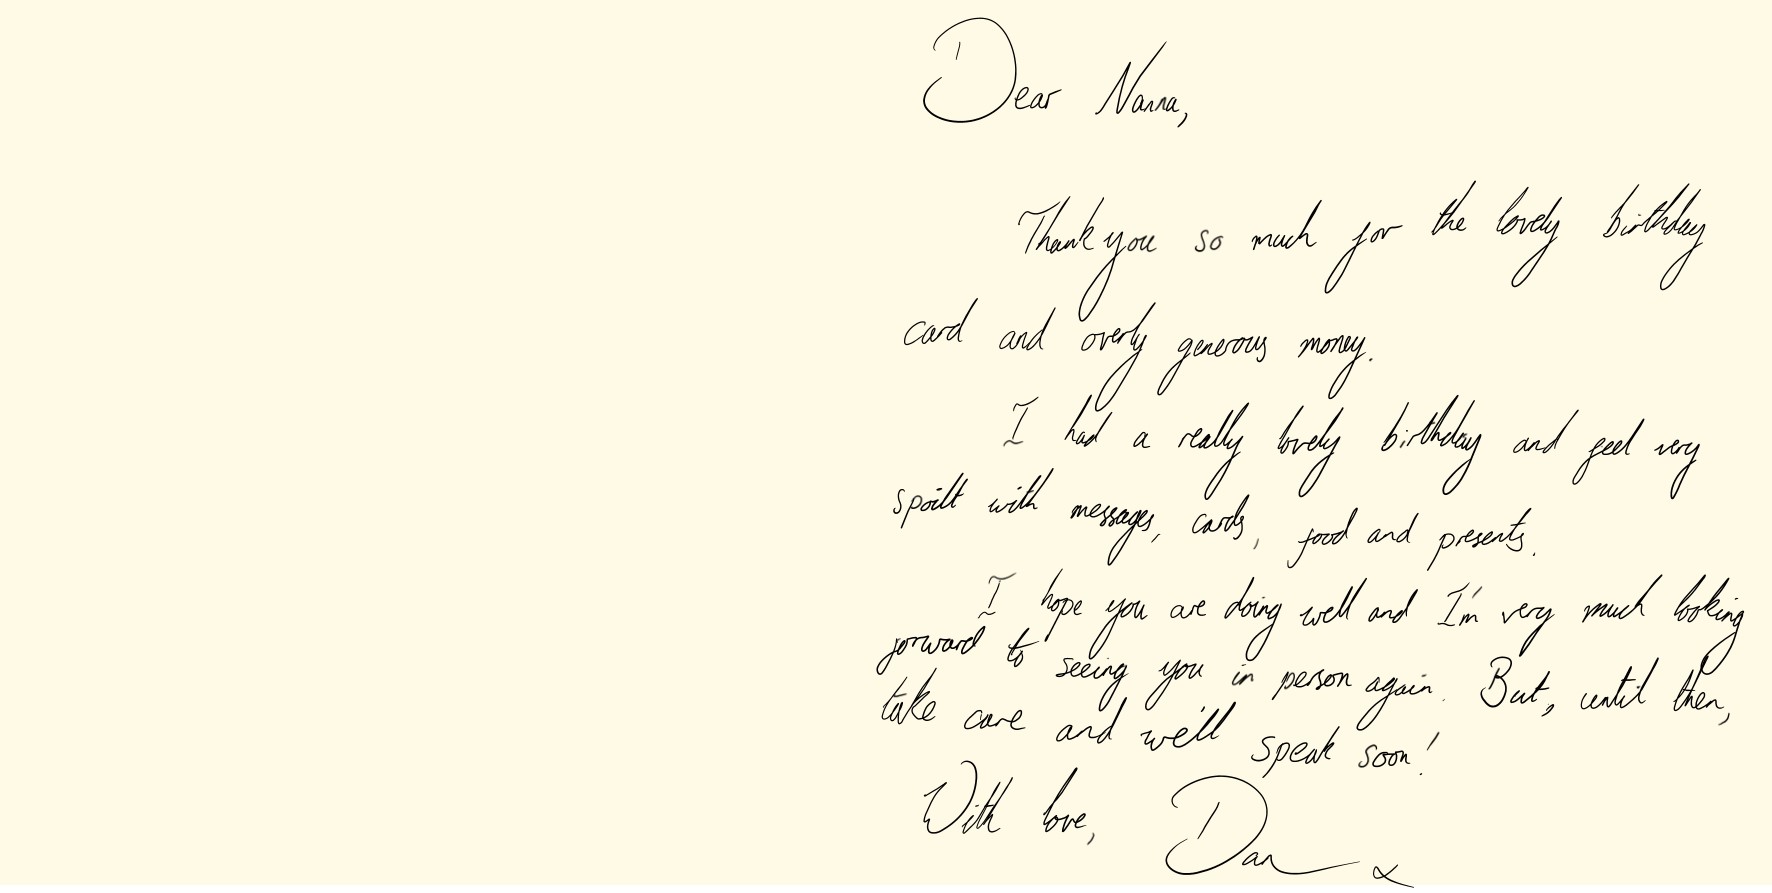 Dear Nanna,
Thank you so much for the lovely birthday
card and overly generous money.
I had a really lovely birthday and feel very
spoilt with messages, cards, food and presents.
I hope you are doing well and I'm very much looking
forward to seeing you in person again. But, until then,
take care and we'll speak soon!
With love, Dan x